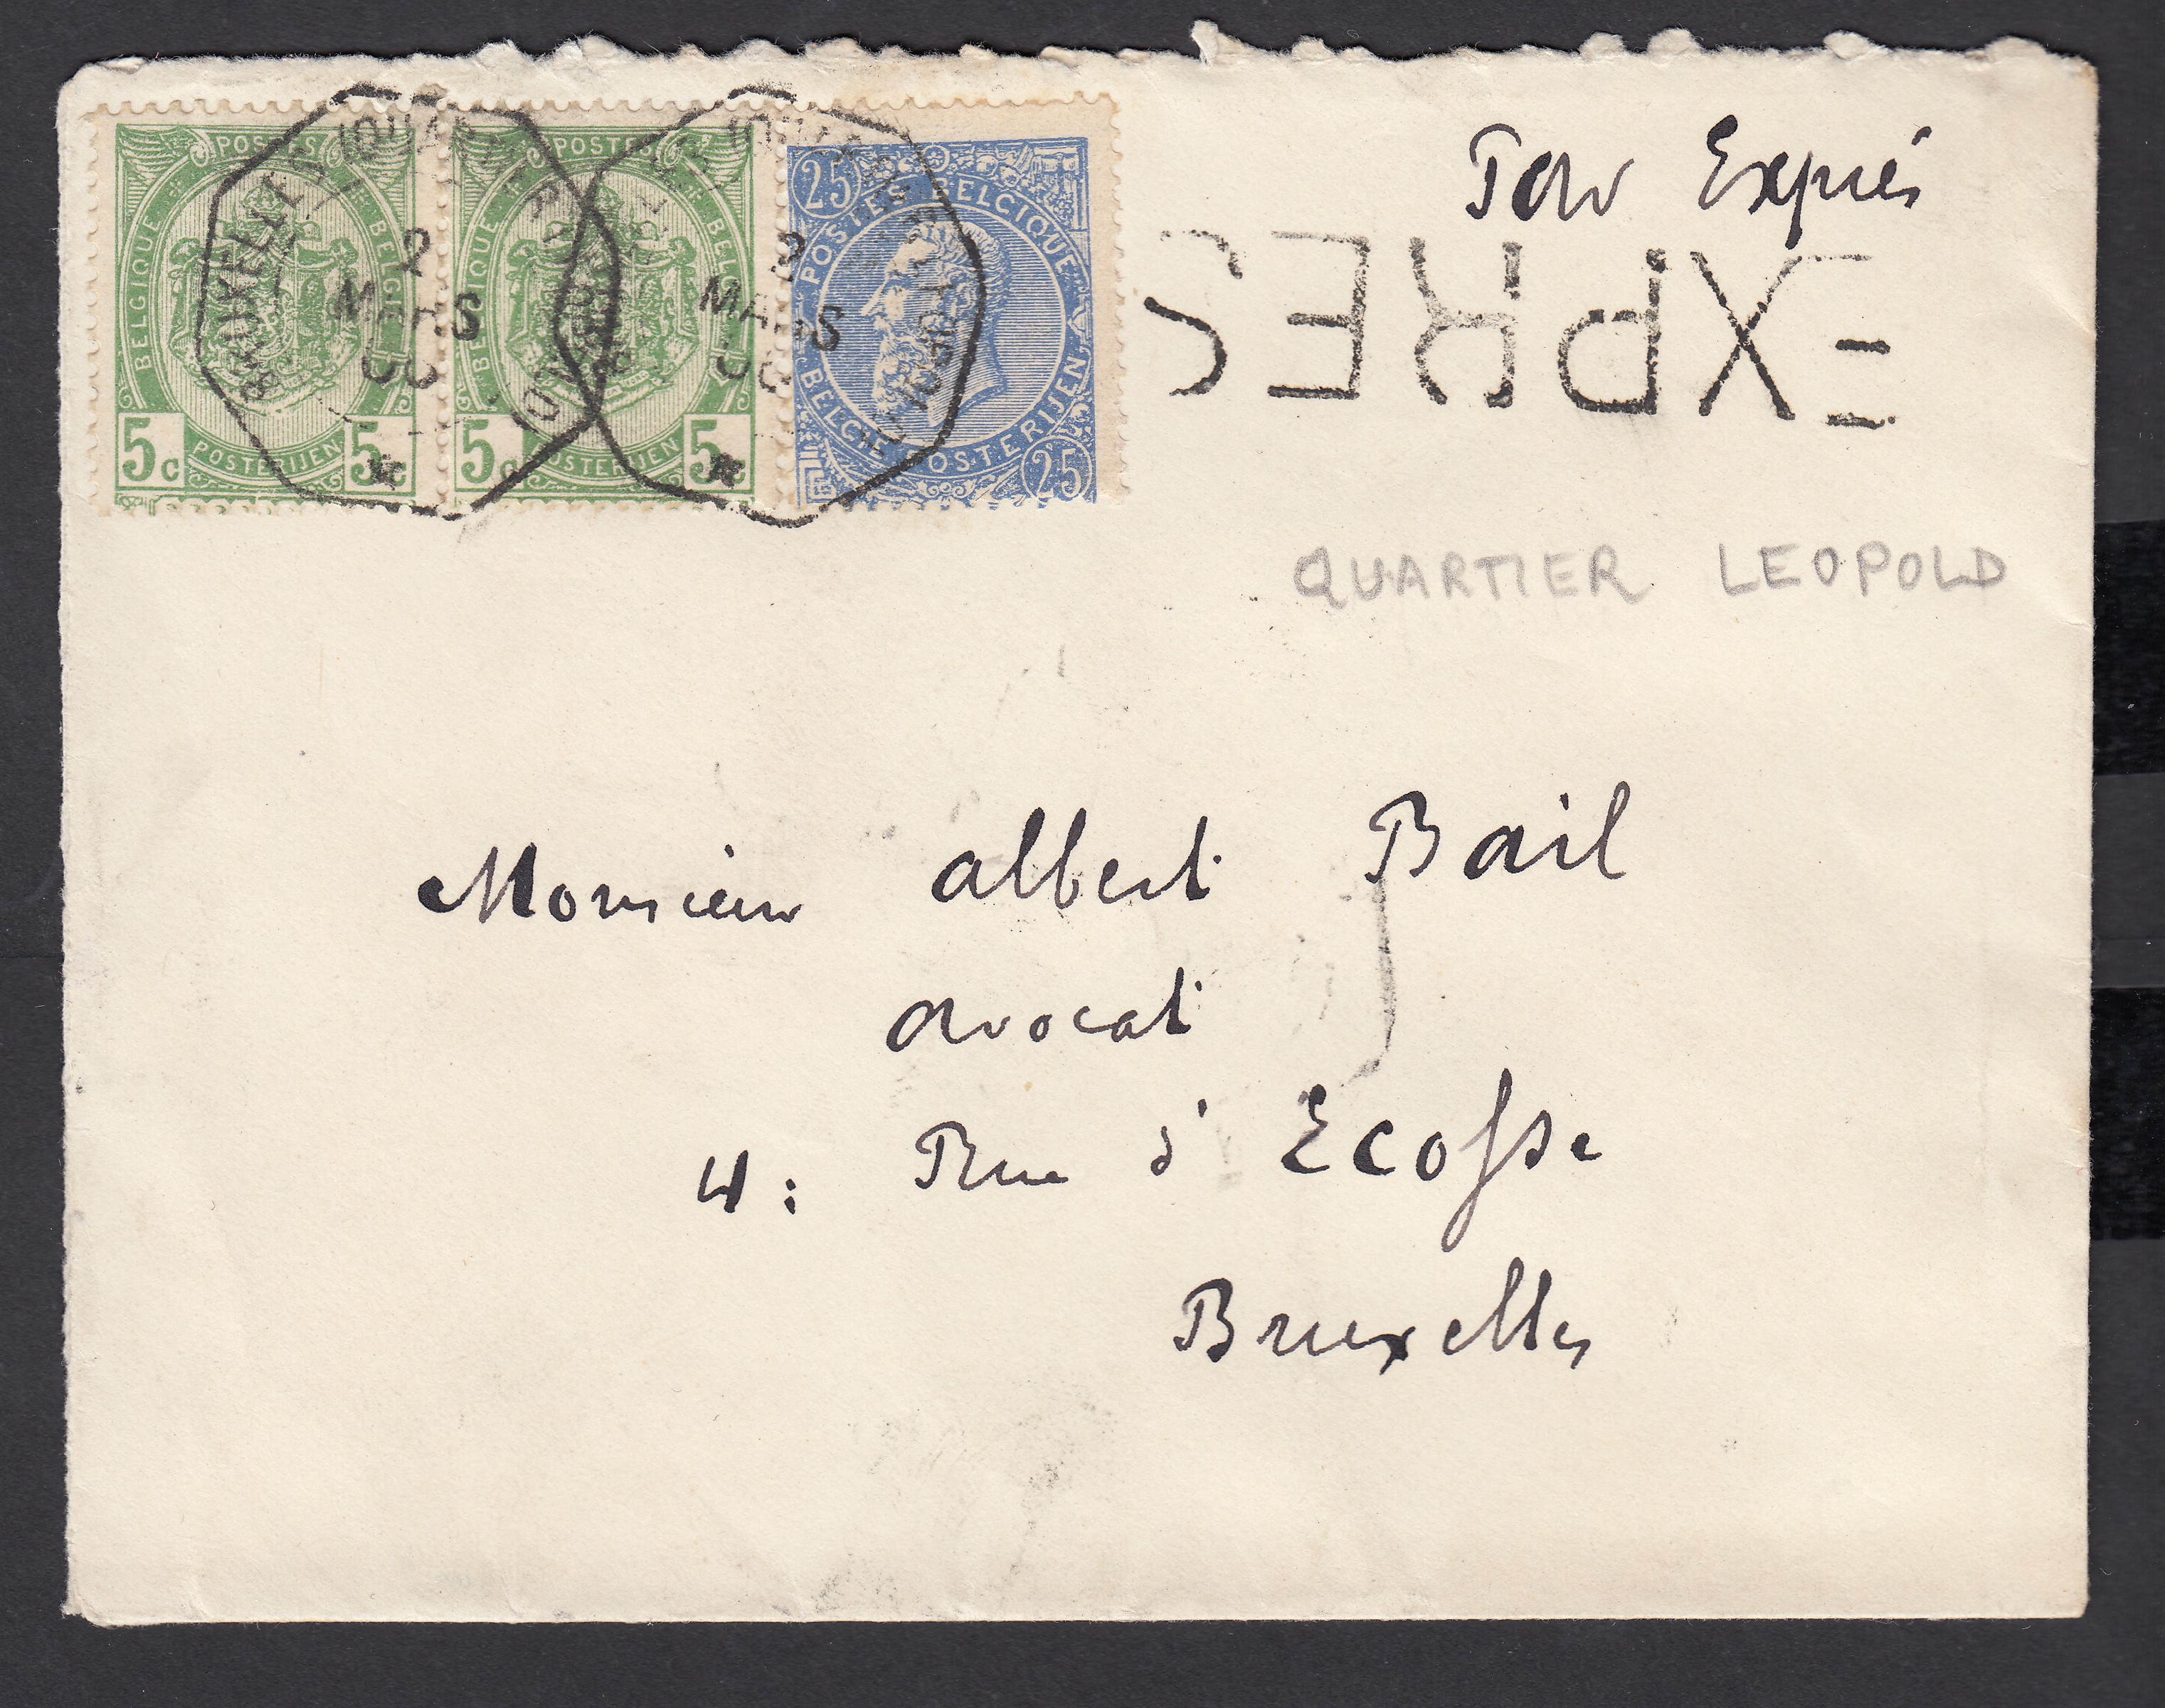 POSTES
BELGIQUE BELGIQUE
5c 5c
POSTERIJEN
POSTES
BELGIQUE BELGIQUE
5c 5c
POSTERIJEN
25
POSTES BELGIQUE
BELGIE POSTERIJEN
25
BRUXELLES (QUARTIER
2
MARS
BRUXELLES (QUARTIER LEOPOLD)
MARS
Par Exprès
EXPRES
QUARTIER LEOPOLD
Monsieur Albert Bail
avocat
4: Rue d'Ecosse
Bruxelles